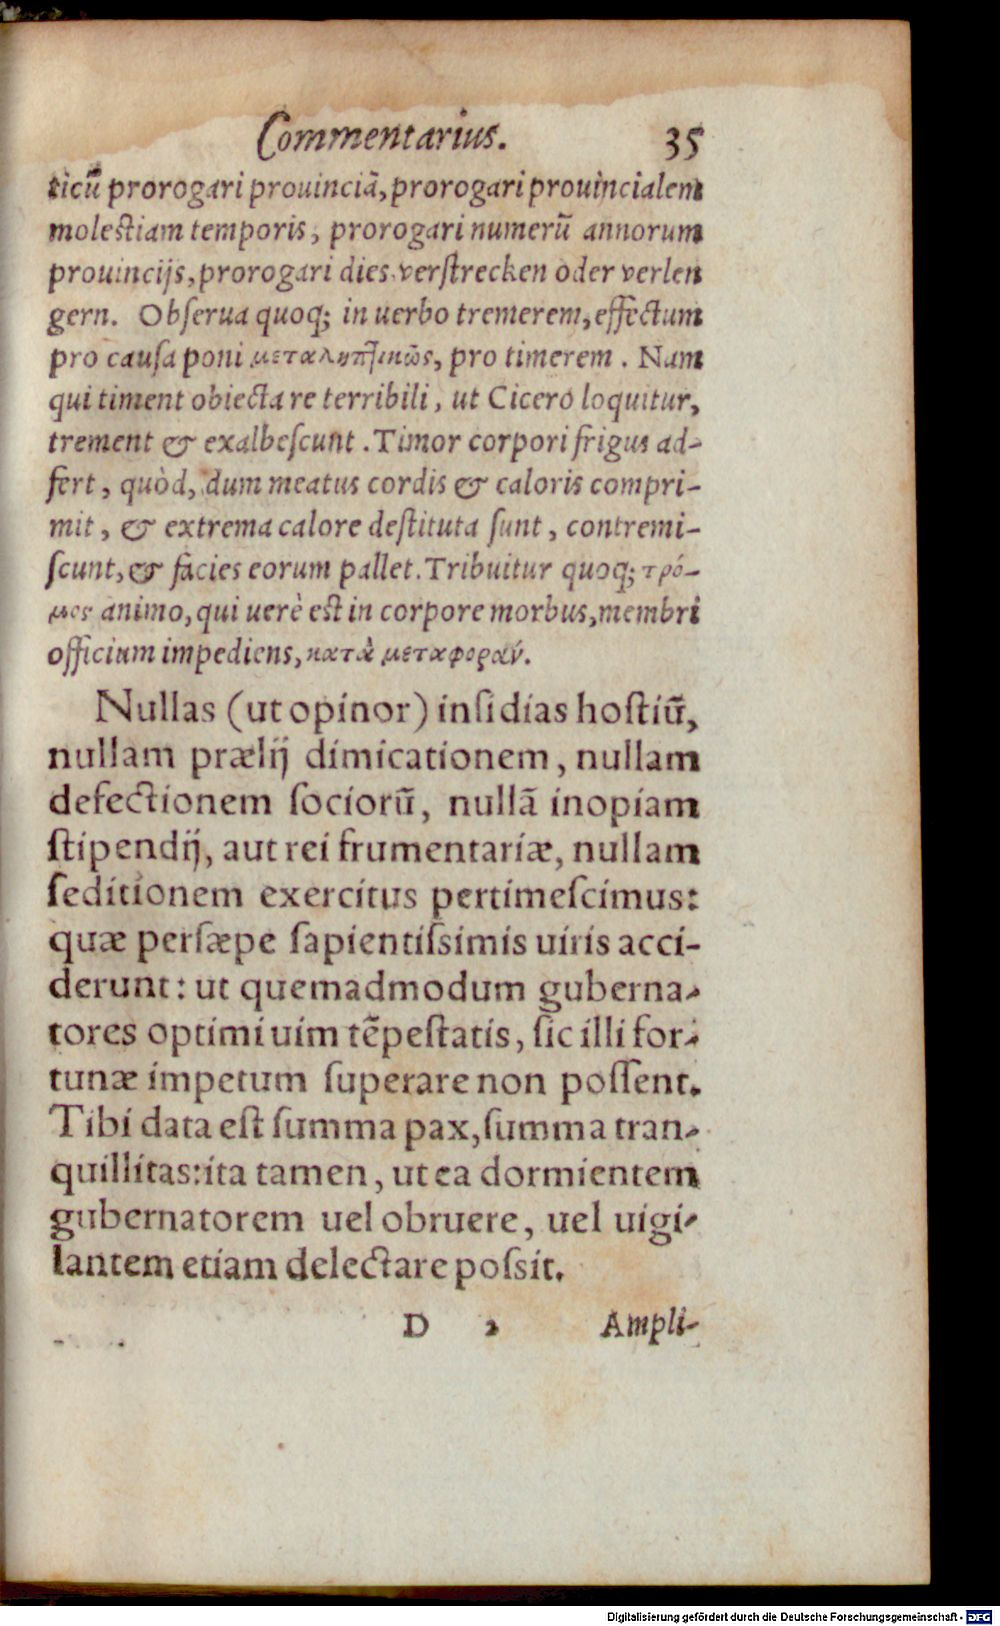 Commentarius. 35
ticũ prorogari prouinciã, prorogari prouincialem
molestiam temporis, prorogari numerũ annorum
prouincijs, prorogari dies verstrecken oder verlen
gern. Obserua quoq; in uerbo tremerem, effectum
pro causa poni μεταληπτικῶς, pro timerem. Nam
qui timent obiecta re terribili, ut Cicero loquitur,
trement & exalbescunt. Timor corpori frigus ad-
fert, quòd, dum meatus cordis & caloris compri-
mit, & extrema calore destituta sunt, contremi-
scunt, & facies eorum pallet. Tribuitur quoq; τρό-
μος animo, qui uerè est in corpore morbus, membri
officium impediens, κατὰ μεταφοράν.
Nullas (ut opinor) insidias hostiũ,
nullam prælij dimicationem, nullam
defectionem sociorũ, nullã inopiam
stipendij, aut rei frumentariæ, nullam
seditionem exercitus pertimescimus:
quæ persæpe sapientissimis uiris acci-
derunt: ut quemadmodum guberna-
tores optimi uim tẽpestatis, sic illi for-
tunæ impetum superare non possent.
Tibi data est summa pax, summa tran-
quillitas: ita tamen, ut ea dormientem
gubernatorem uel obruere, uel uigi-
lantem etiam delectare possit.
D 2 Ampli-
Digitalisierung gefördert durch die Deutsche Forschungsgemeinschaft - DFG